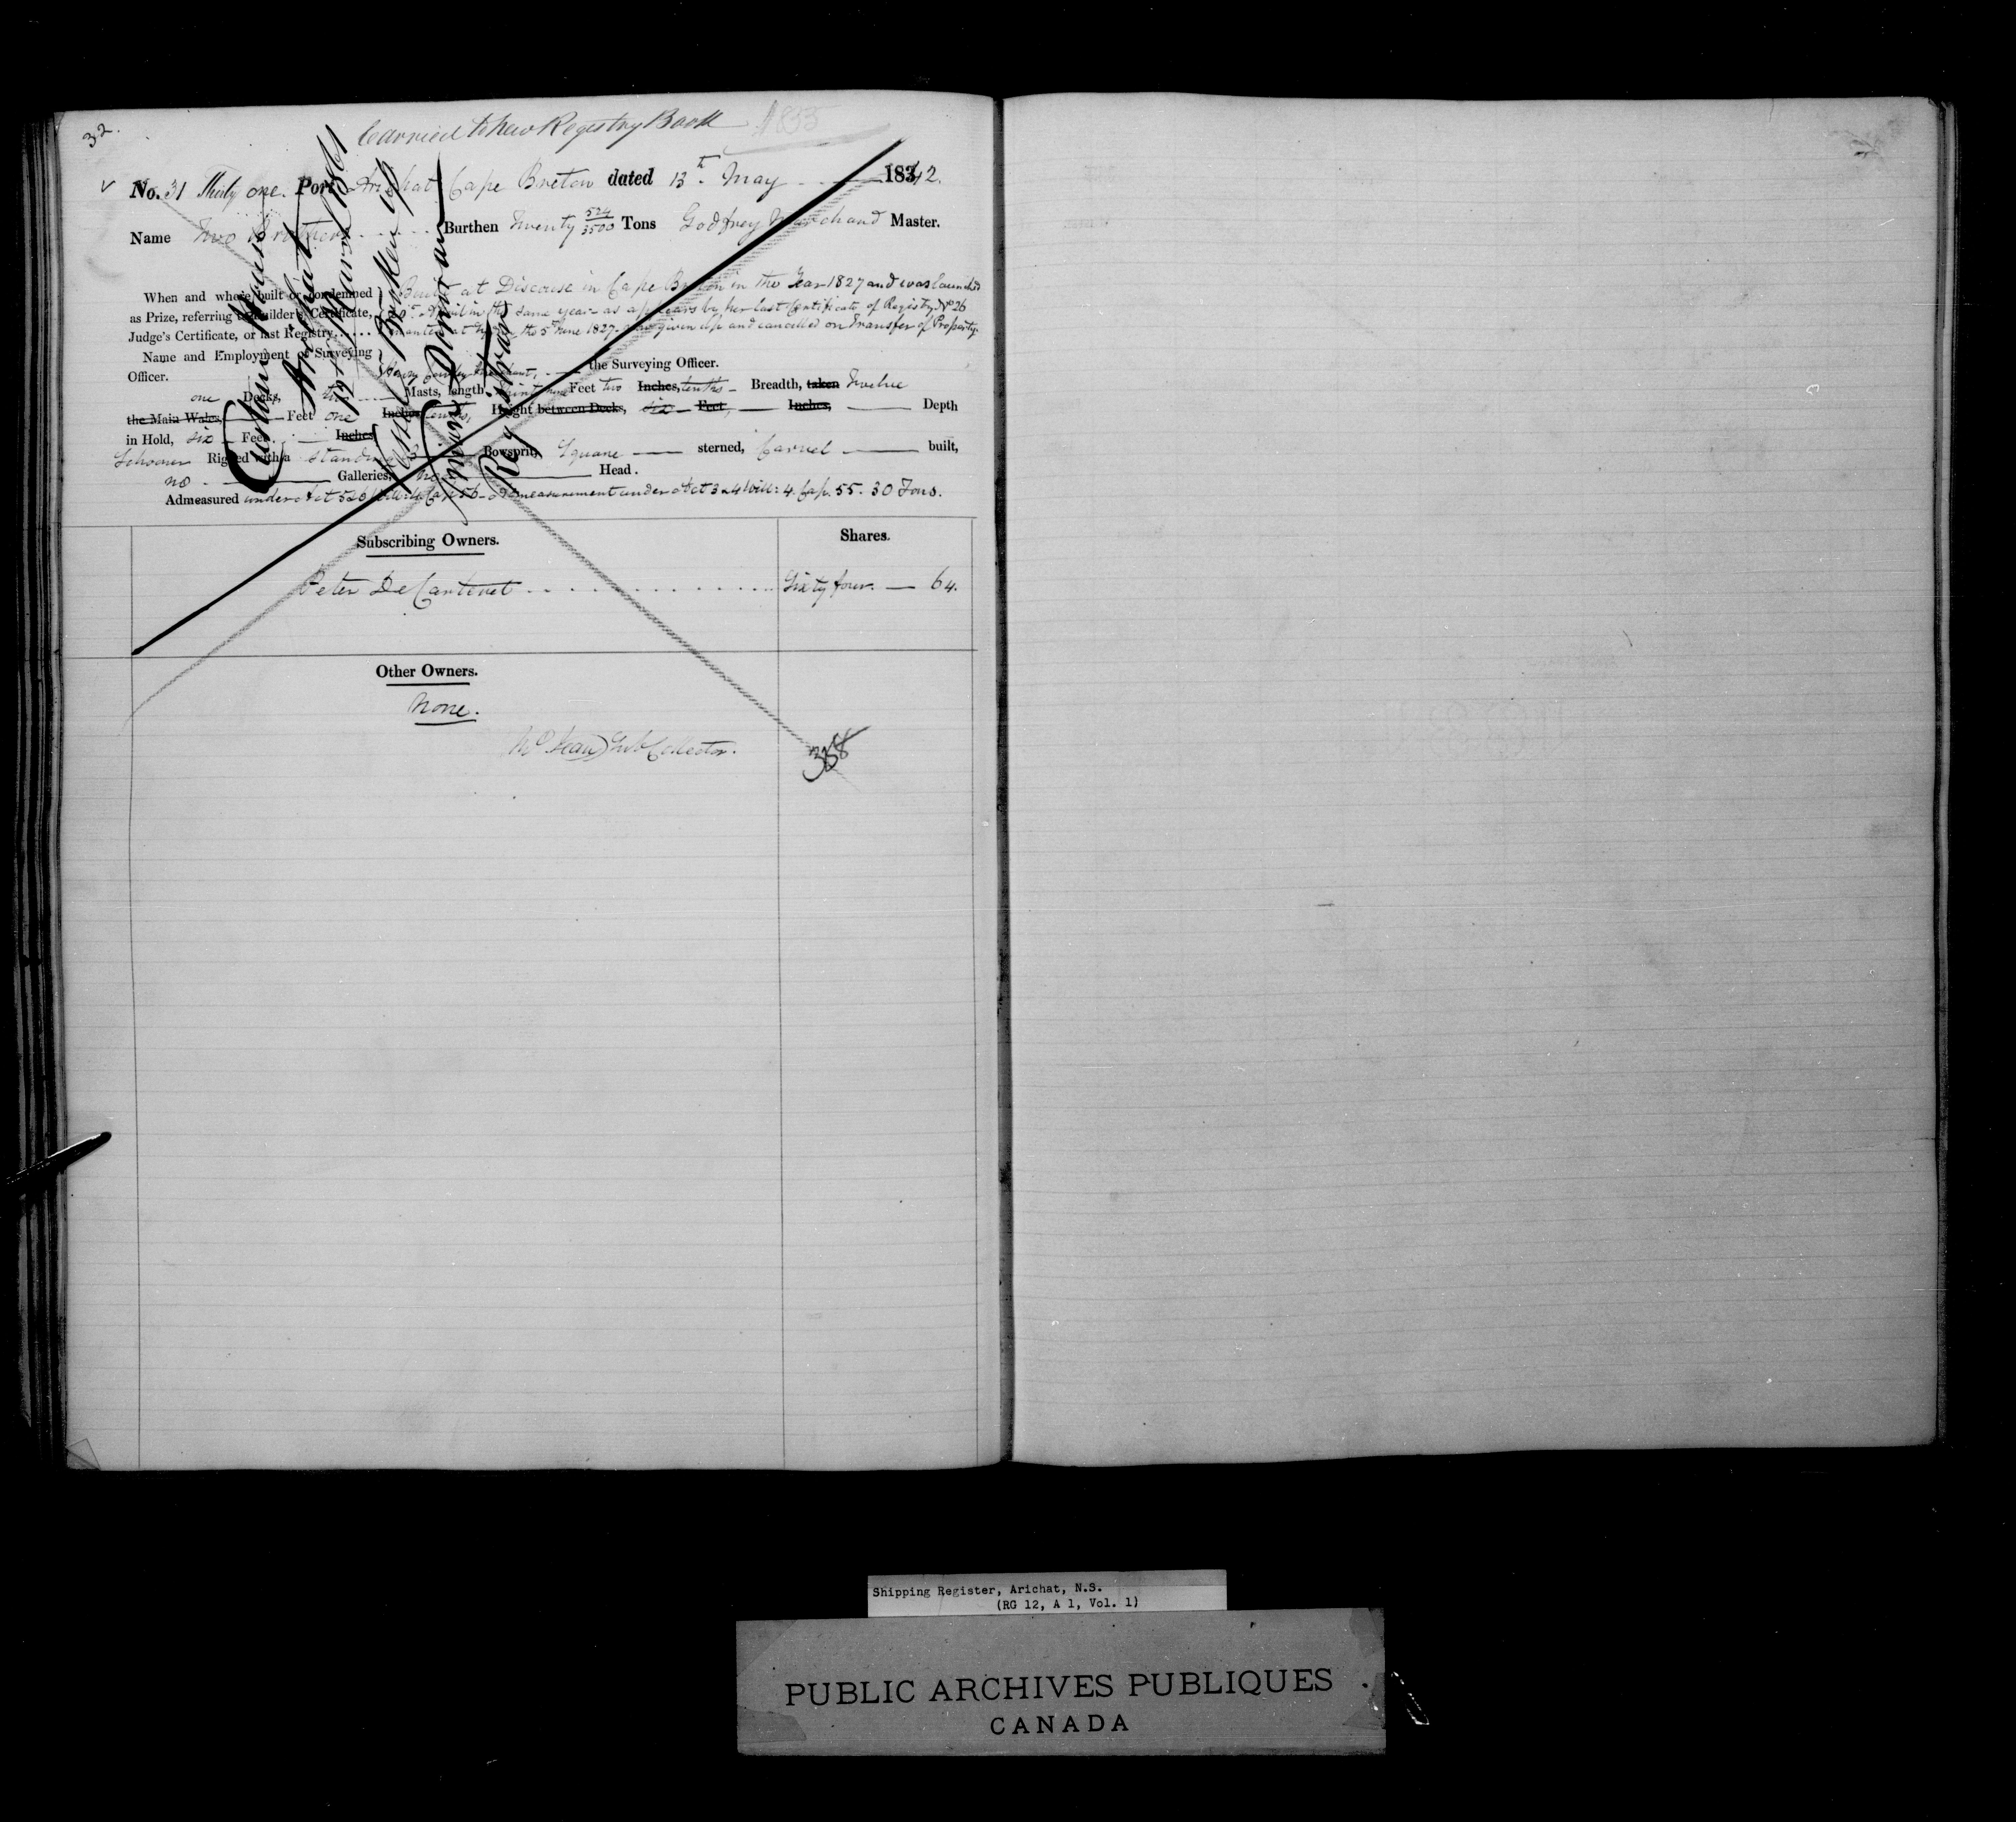 32.
Carried to New Registry Book 1835
No. 31 Thirty one. Port Arichat Cape Breton dated 13th. May 1842.
Name Two Brothers Burthen Twenty 524/3500 Tons Godfrey Marchand Master.
When and where built or condemned
as Prize, referring to Builder's Certificate,
Judge's Certificate, or last Registry.....
Built at Discouse in Cape Breton in the Year 1827 and was launched
April in the same year as appears by her last Certificate of Registry No 26
granted at the 5th June 1827. now given up and cancelled on Transfer of Property.
Name and Employment of Surveying
Officer.
Henry the Surveying Officer.
one Decks, two Masts, length, Feet two Inches, tenths Breadth, taken Twelve
the Main Wales, Feet one Inches tenths, Height between Decks, six Feet, Inches, Depth
in Hold, six Feet Inches
Schooner Rigged with a standing Bowsprit, Square sterned, Carvel built,
no Galleries, no Head.
Admeasured under Act 5 & 6 Will: 4 Cap 56 - Admeasurement under Act 3 & 4 Will: 4. Cap. 55. 30 Tons.
Custom House
Arichat
19th March 1861
Vessel Broken up
Registrar
Subscribing Owners. Shares.
Peter DeCarteret Sixty four. — 64.
Other Owners.
None.
Sub Collector.
358
Shipping Register, Arichat, N.S.
(RG 12, A 1, Vol. 1)
PUBLIC ARCHIVES PUBLIQUES
CANADA